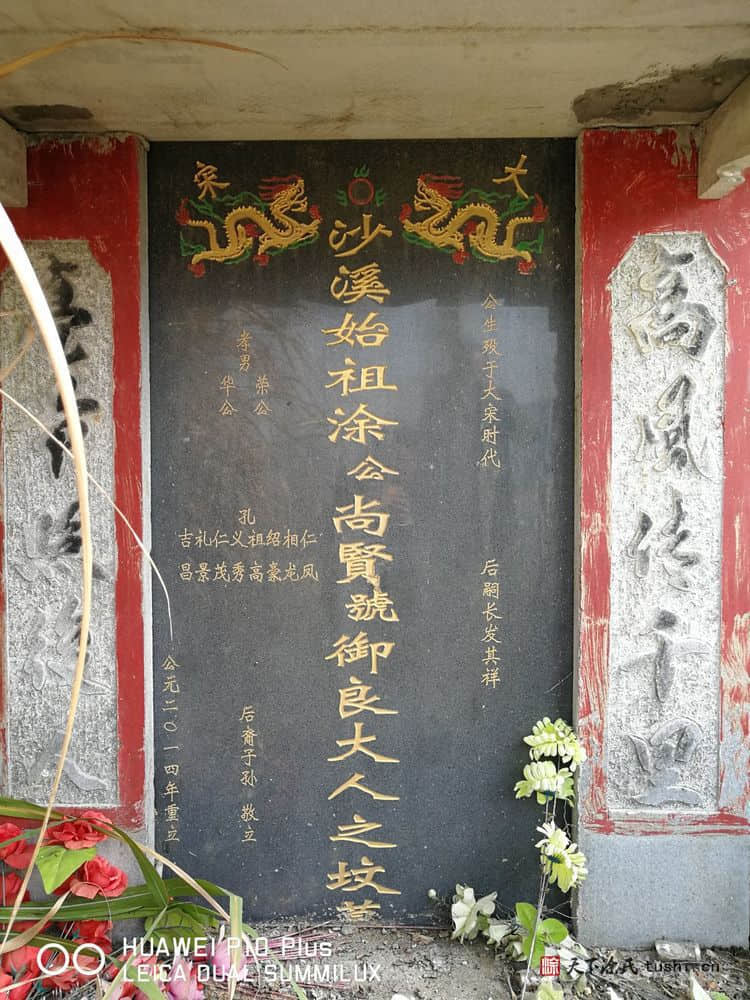 高风传千
大宋
公生殁于大宋时代
后嗣长发其祥
沙溪始祖涂公尚賢號御良大人之坟墓
孝男
荣公
华公
孔
吉礼仁义祖绍相仁
昌景茂秀高豪龙凤
后裔子孙 敬立
公元二〇一四年重立
HUAWEI P10 Plus
LEICA DUAL SUMMILUX
天下涂氏 tushi.cn